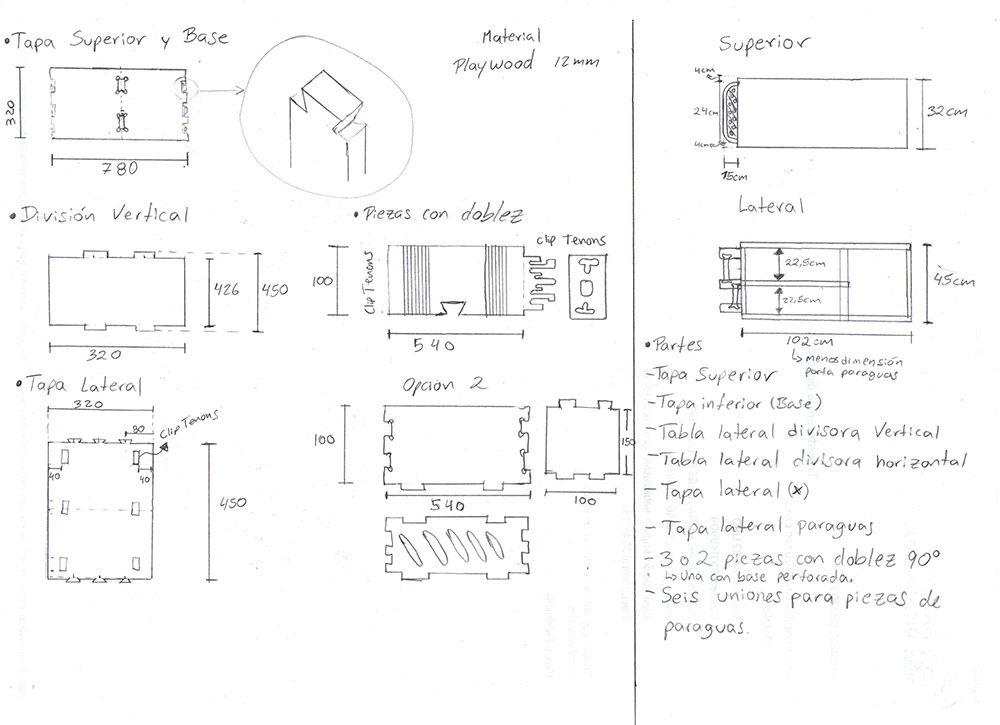 • Tapa Superior y Base
Material
Playwood 12mm
320
780
• División Vertical
426
450
320
• Piezas con doblez
Clip Tenons
100
Clip Tenons
540
• Tapa Lateral
320
80
Clip Tenons
40
40
450
Opcion 2
100
540
150
100
Superior
4cm
24cm
4cm
15cm
32cm
Lateral
22,5cm
22,5cm
45cm
102cm
↳ menos dimensión
porta paraguas
• Partes
- Tapa Superior
- Tapa inferior (Base)
- Tabla lateral divisora Vertical
- Tabla lateral divisora horizontal
- Tapa lateral (x)
- Tapa lateral paraguas
- 3 o 2 piezas con doblez 90°
↳ Una con base perforada.
- Seis uniones para piezas de
paraguas.